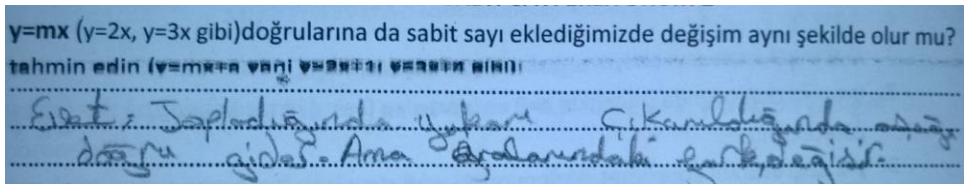 y=mx (y=2x, y=3x gibi)doğrularına da sabit sayı eklediğimizde değişim aynı şekilde olur mu?
tahmin edin (y=mx+n yani y=2x+1, y=3x+n gibi)
Evet, Topladığında yukarı Çıkarıldığında aşağı
doğru gider. Ama aralarındaki fark değişir.